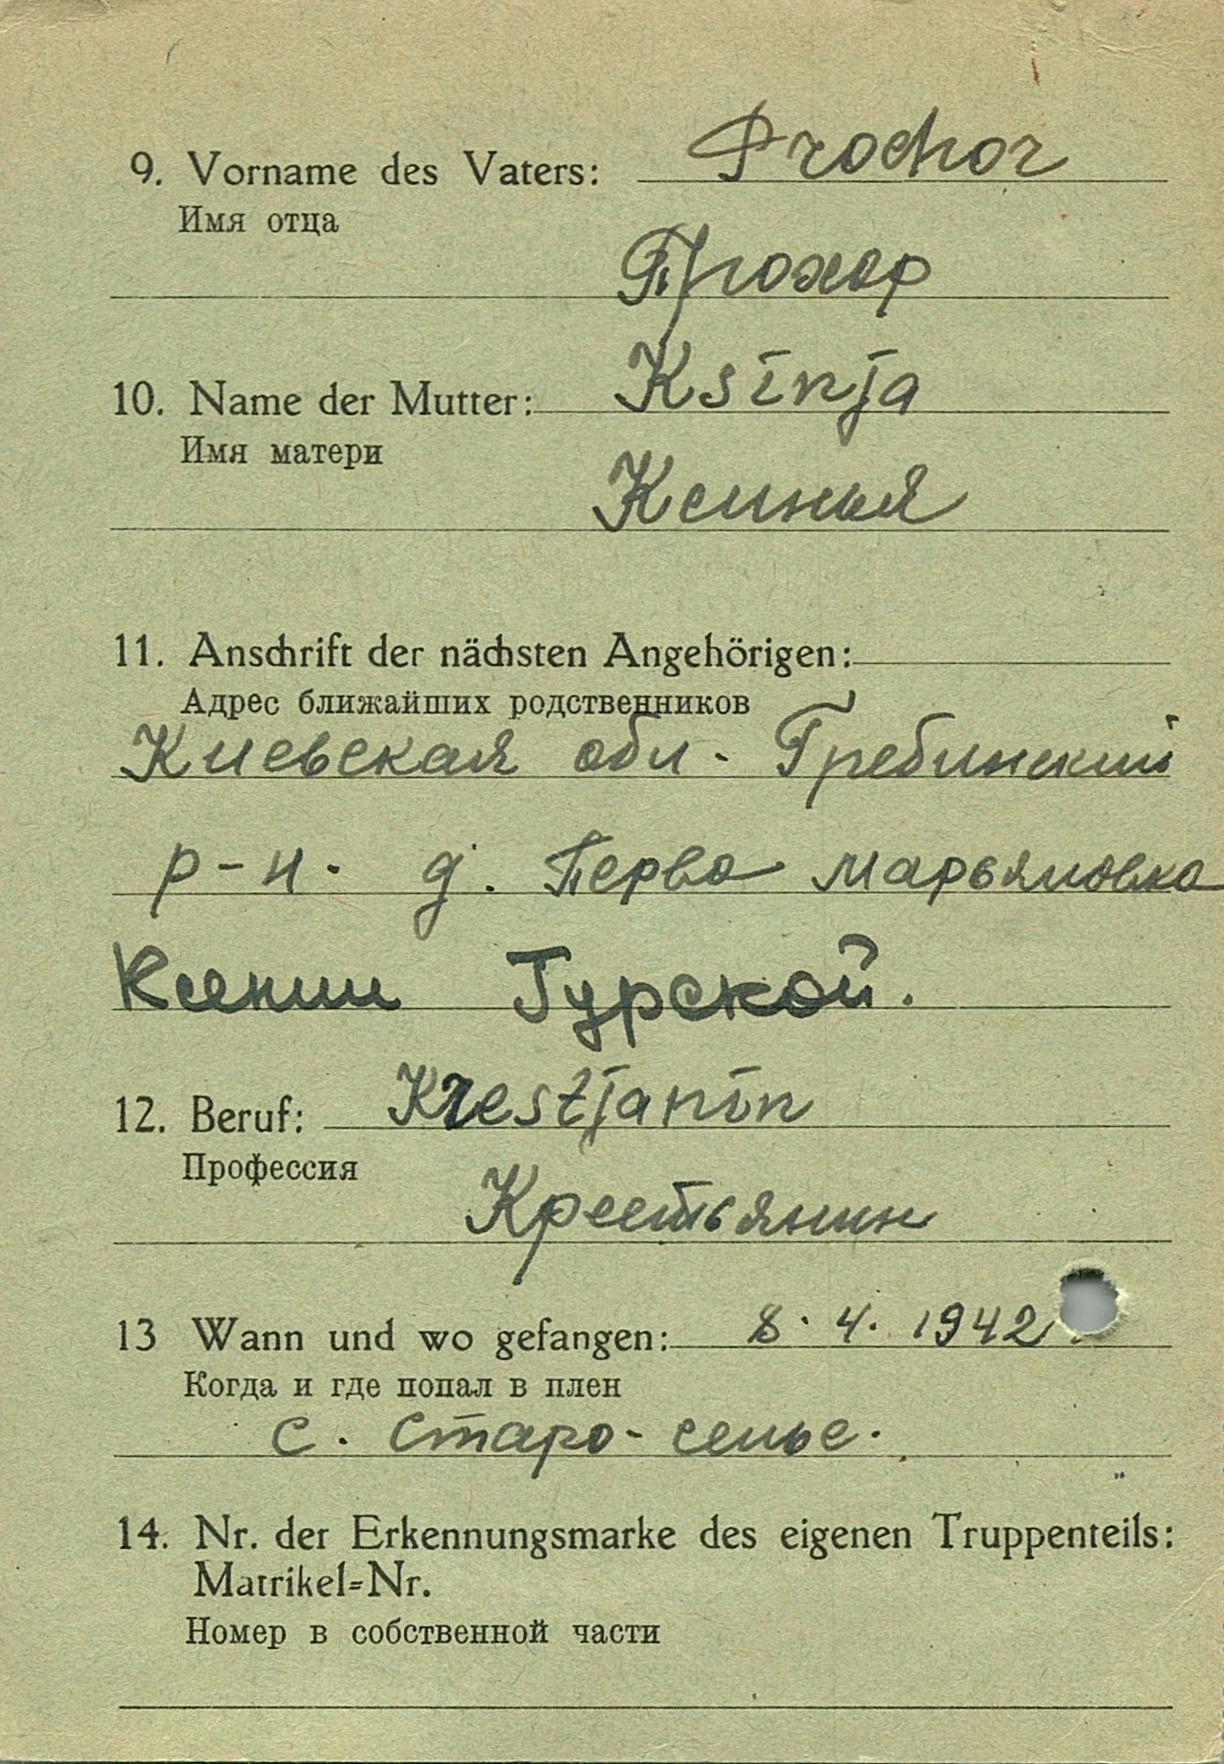 9. Vorname des Vaters: Prochor
Имя отца
Прохор
10. Name der Mutter: Ksinja
Имя матери
Ксинья
11. Anschrift der nächsten Angehörigen:
Адрес ближайших родственников
Киевская обл. Гребинский
р-н. д. Перво Марьяновка
Ксении Гурской.
12. Beruf: Krestjanin
Профессия
Крестьянин
13 Wann und wo gefangen: 8. 4. 1942
Когда и где попал в плен
с. Старо-селье.
14. Nr. der Erkennungsmarke des eigenen Truppenteils:
Matrikel=Nr.
Номер в собственной части